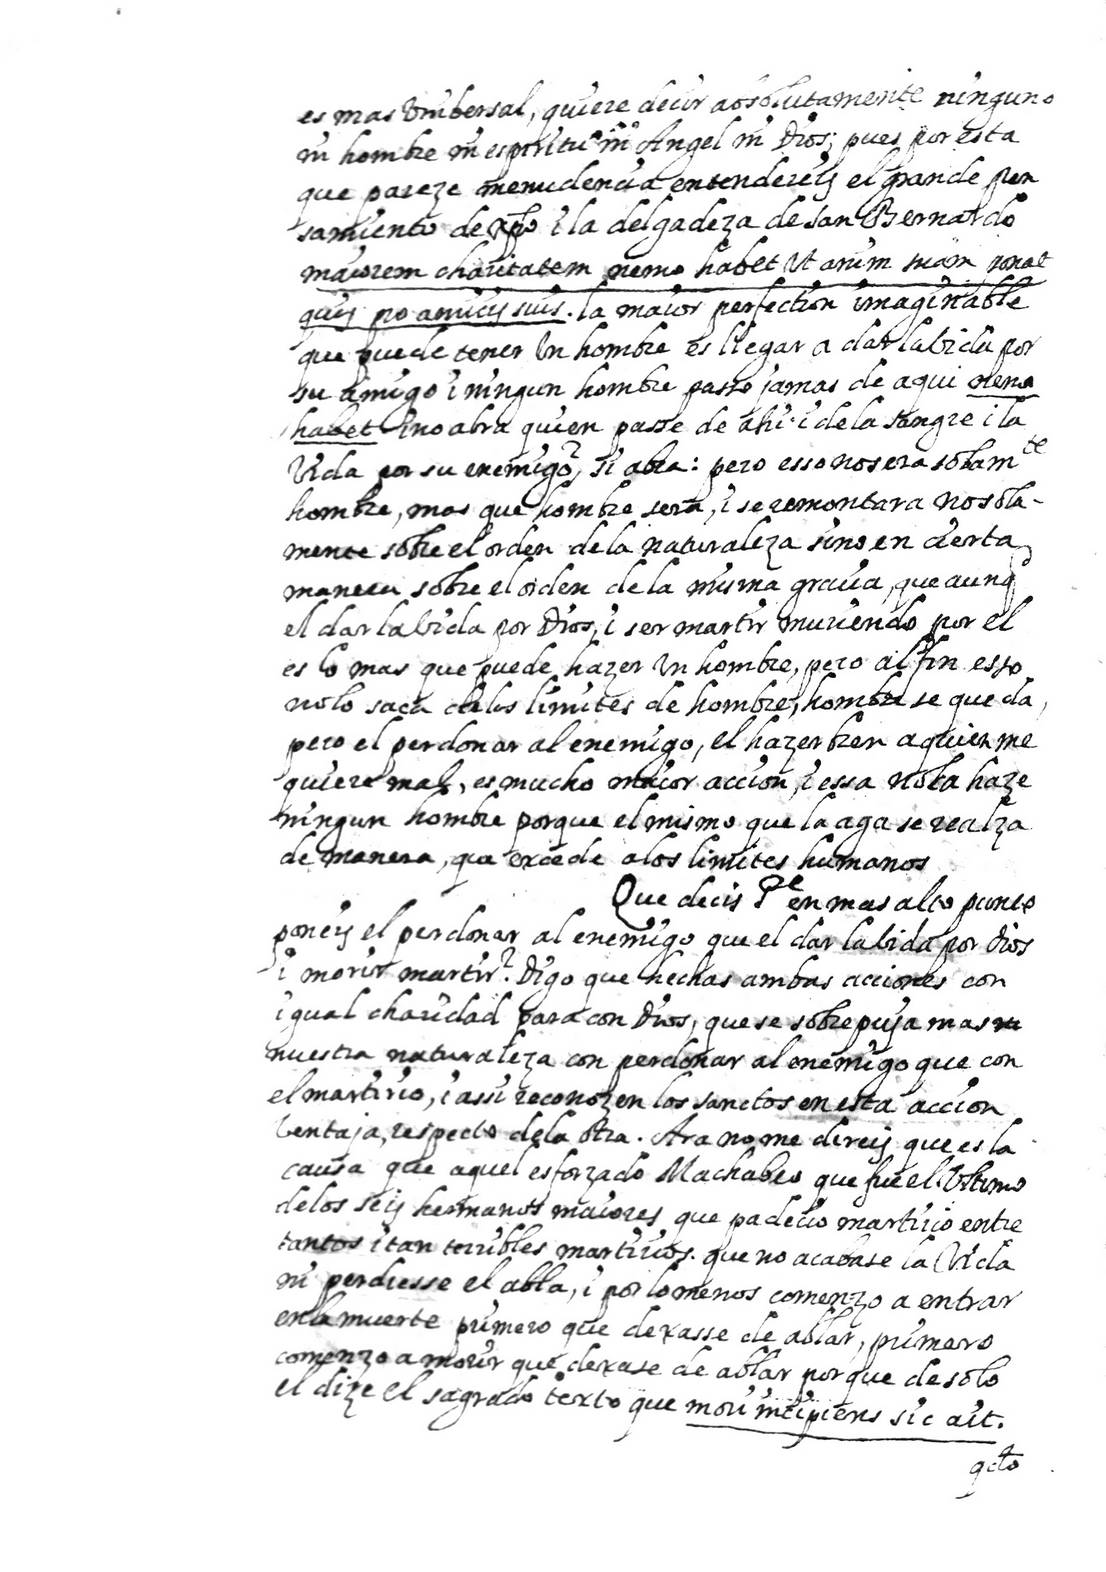 es mas Vnibersal, quiere decir absolutamente ninguno
ni hombre ni espiritu ni Angel ni Dios; pues por esta
que pareze menudencia entendereis el grande pen
samiento de Xpo i la delgadeza de san Bernardo
maiorem charitatem nemo habet Vt anim suam ponat
quis pro amicis suis. la maior perfection imaginable
que puede tener Vn hombre es llegar a dar la bida por
su amigo i ningun hombre passo jamas de aqui nemo
habet i no abra quien passe de ahi i de la sangre i la
Vida por su enemigo? si abra: pero esso no sera solam.te
hombre, mas que hombre sera, i se remontara no sola-
mente sobre el orden de la naturaleza sino en cierta
manera sobre el orden de la misma gracia, que aunq
el dar la bida por Dios, i ser martir muriendo por el
es lo mas que puede hazer Vn hombre, pero al fin esso
no lo saca de los limites de hombre, hombre se queda,
pero el perdonar al enemigo, el hazer bien a quien me
quiere mal, es mucho maior accion, i essa no la haze
ningun hombre porque el mismo que la aga se realza
de manera, que excede a los limites humanos
Que decis P.e en mas alto punto
poneis el perdonar al enemigo que el dar la bida por Dios
i morir martir? Digo que hechas ambas acciones con
igual charidad para con Dios, que se sobrepuja mas
nuestra naturaleza con perdonar al enemigo que con
el martirio, i assi reconozen los sanctos en esta accion
Ventaja, respecto de la otra. Ara no me direis que es la
causa que aquel esforzado Machabeo que fue el Vltimo
de los seis hermanos maiores que padecio martirio entre
tantos i tan terribles martirios. que no acabase la Vida
ni perdiesse el abla, i por lo menos comenzo a entrar
en la muerte primero que dexasse de ablar, primero
comenzo a morir que dexase de ablar porque de solo
el dize el sagrado texto que mori incipiens sic ait.
qdo